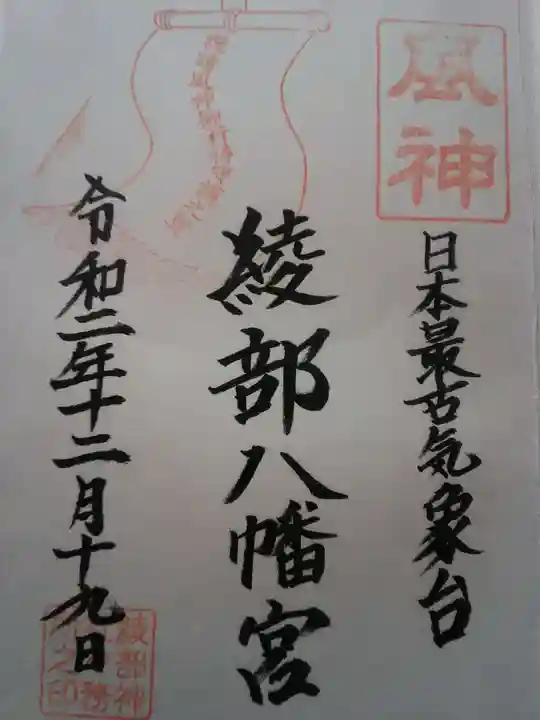 風神
日本最古気象台
綾部八幡宮
令和二年十二月十九日
綾部神